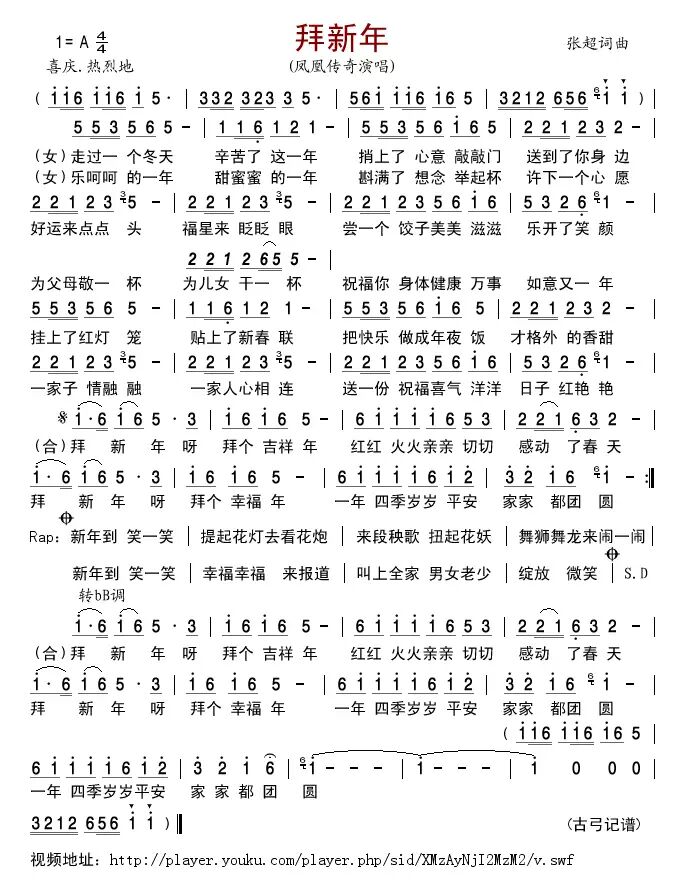 拜新年
1= A 4/4
张超词曲
喜庆.热烈地
(凤凰传奇演唱)
( i i 6 i i 6 i 5 · | 3 3 2 3 2 3 3 5 · | 5 6 i i i 6 i 6 5 | 3 2 1 2 6 5 6 i i ) |
5 5 3 5 6 5 - | 1 1 6 1 2 1 - | 5 5 3 5 6 5 6 i 6 5 | 5 5 3 2 2 3 - |
(女)走过一 个冬天 辛苦了 这一年 捎上了 心意 敲敲门 送到了你身 边
(女)乐呵呵 的一年 甜蜜蜜 的一年 斟满了 想念 举起杯 许下一个心 愿
2 2 1 2 3 5 - | 2 2 1 2 3 5 - | 2 2 1 2 3 5 6 i 6 | 5 3 2 6 i - |
好运来点点 头 福星来 眨眨 眼 尝一个 饺子美美 滋滋 乐开了笑 颜
2 2 1 2 6 5 5 - |
为父母敬一 杯 为儿女 干一 杯 祝福你 身体健康 万事 如意又一 年
5 5 3 5 6 5 - | 1 1 6 1 2 1 - | 5 5 3 5 6 5 i 6 5 | 2 2 1 2 3 2 - |
挂上了红灯 笼 贴上了新春 联 把快乐 做成年夜 饭 才格外 的香甜
2 2 1 2 3 5 - | 2 2 1 2 3 5 - | 2 2 1 2 3 5 6 i 6 | 5 3 2 6 i - |
一家子 情融 融 一家人心相 连 送一份 祝福喜气 洋洋 日子 红艳 艳
i · 6 i 6 5 · 3 | i 6 i 6 5 - | 6 i i i i 6 5 3 | 2 2 1 6 3 2 - |
(合)拜 新 年 呀 拜个 吉祥 年 红红 火火亲亲 切切 感动 了春 天
i · 6 i 6 5 · 3 | i 6 i 6 5 - | 6 i i i i 6 i 2 | 3 2 i 6 i - :‖
拜 新 年 呀 拜个 幸福 年 一年 四季岁岁 平安 家家 都团 圆
Rap: 新年到 笑一笑 | 提起花灯去看花炮 | 来段秧歌 扭起花妖 | 舞狮舞龙来闹一闹 |
新年到 笑一笑 | 幸福幸福 来报道 | 叫上全家 男女老少 | 绽放 微笑 | S.D
转bB调
i · 6 i 6 5 · 3 | i 6 i 6 5 - | 6 i i i i 6 5 3 | 2 2 1 6 3 2 - |
(合)拜 新 年 呀 拜个 吉祥 年 红红 火火亲亲 切切 感动 了春 天
i · 6 i 6 5 · 3 | i 6 i 6 5 - | 6 i i i i 6 i 2 | 3 2 i 6 i - |
拜 新 年 呀 拜个 幸福 年 一年 四季岁岁 平安 家家 都团 圆
( i i 6 i i 6 i 6 5
6 i i i i 6 i 2 | 3 2 i 6 | i - - - | i - - - | 1 0 0 0 |
一年 四季岁岁平安 家 家 都 团 圆
3 2 1 2 6 5 6 i i ) ‖
(古弓记谱)
视频地址：http://player.youku.com/player.php/sid/XMzAyNjI2MzM2/v.swf